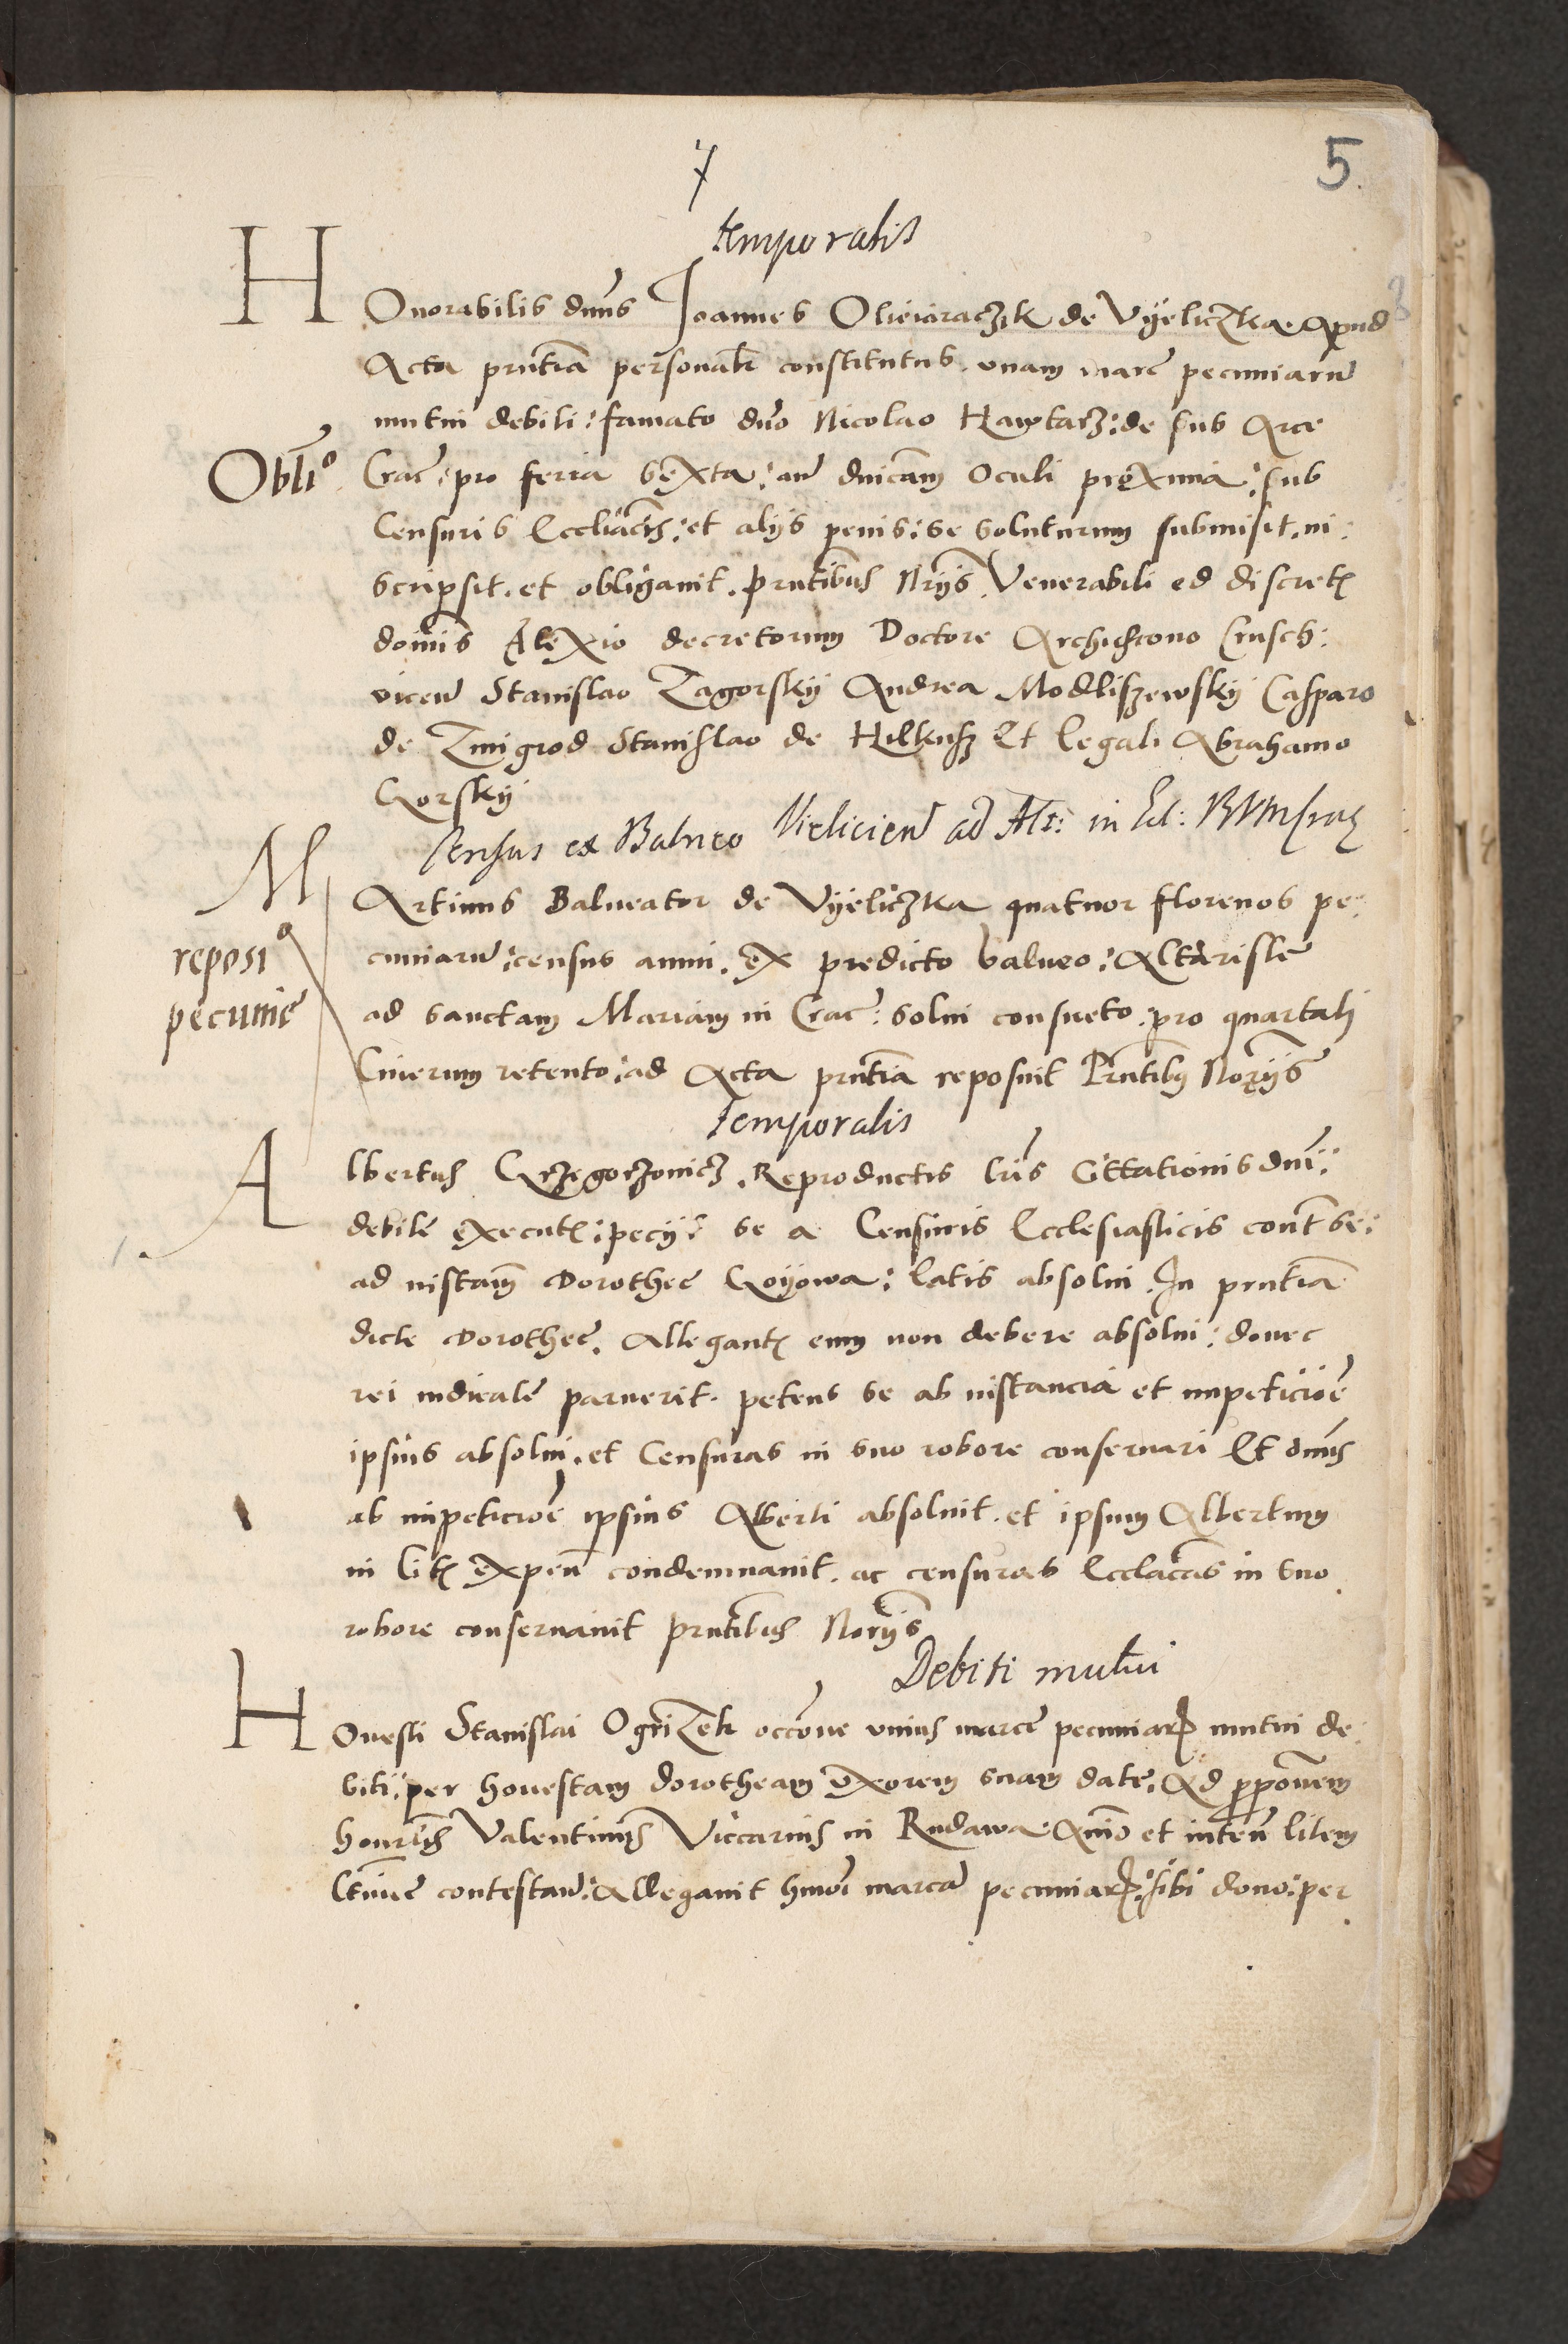 5.
7
temporalis
HOnorabilis dnns Joannes Olieiaraczik de Vÿeliczka Apud
Acta prntia personalr constitutus. vnam marc pecuniarum
mutui debiti: famato dno Nicolao Hawtarz: de sub Arce
Oblio
Crac: pro feria sexta: an dnicam Oculi proxima: sub
Censuris Eccliacis: et alijs penis: se soluturum submisit. in:
scripsit. et obligauit. prntibus Nrijs Venerabili ed discret
dominis Alexio decretorum Doctore Archidcono Crusch:
vicen Stanislao Zagorskÿ Andrea Modliszewskÿ Casparo
de Zmigrod Stanislao de Hilkusz Et legali Abrahamo
Gorskÿ
Census ex Balneo Vieliciens ad Alt: in Ecl: BVM
MArtinus Balneator de Vÿeliczka quatuor florenos pe:
reposio
cuniarum: census annui. ex predicto balneo: Altariste
pecunie
ad sanctam Mariam in Crac: solui consueto. pro quartali
Cinerum retento: ad Acta prntia reposuit Prntibus Norijs
temporalis
Albertus Grzegorzonicz. Reproductis lris Cittationis dni:
debite execut: pecijt se a Censuris Ecclesiasticis cont se:
ad instam Dorothee Goÿowa: latis absolui. In prntia
dicte Dorothee. Allegant eum non debere absolui: donec
rei iudicate paruerit. petens se ab instancia et impeticioe
ipsius absolui. et Censuras in suo robore conseruari Et dnus
ab impeticioe ipsius Alberti absoluit. et ipsum Albertum
in lit expen condemnauit. ac censuras Ecclacas in suo
robore conseruauit prntibus Norijs
Debiti mutui
HOnesti Stanislai Ogrizek occone vnius marce pecuniar mutui de:
biti: per honestam dorotheam vxorem suam date. Ad proponem
honrlis Valentinus Viccarius in Rudawa. Animo et inten litem
ltime contestan: Allegauit hmoi marca pecuniar: sibi dono: per